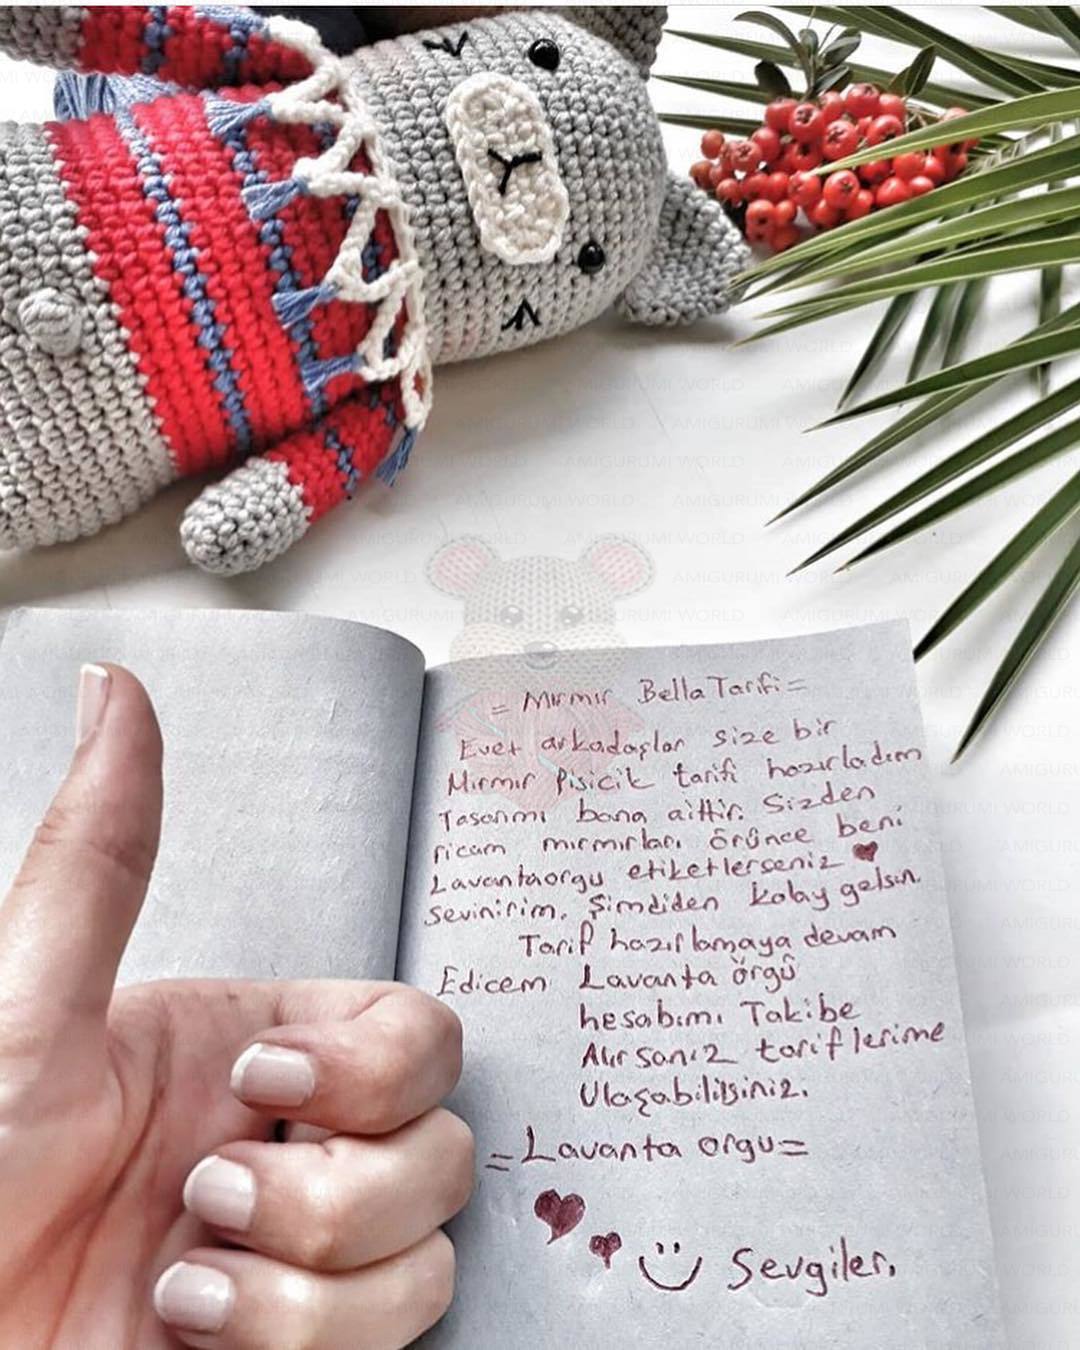 = Mırmır Bella Tarifi =
Evet arkadaşlar size bir
Mırmır Pisicik tarifi hazırladım
Tasarımı bana aittir. Sizden
ricam mırmırları örünce beni
Lavantaorgu etiketlerseniz
sevinirim. Şimdiden kolay gelsin.
Tarif hazırlamaya devam
Edicem Lavanta örgü
hesabımı Takibe
Alırsanız tariflerime
Ulaşabilirsiniz.
= Lavanta orgu =
Sevgiler.
AMIGURUMI WORLD